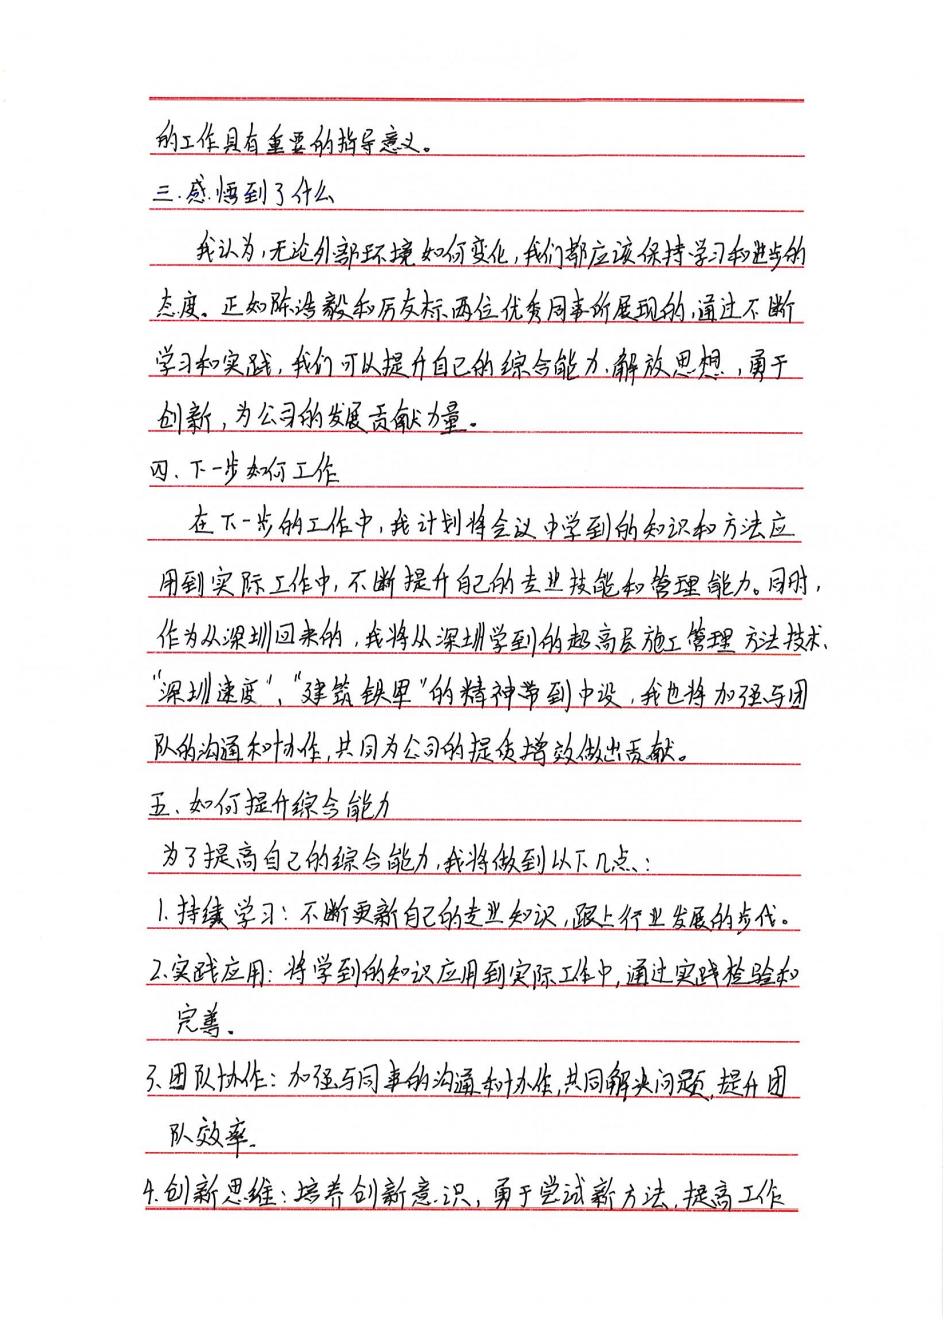 的工作具有重要的指导意义。
三.感悟到了什么
我认为,无论外部环境如何变化,我们都应该保持学习和进步的
态度。正如陈浩毅和厉友标两位优秀同事所展现的,通过不断
学习和实践,我们可以提升自己的综合能力,解放思想,勇于
创新,为公司的发展贡献力量。
四、下一步如何工作
在下一步的工作中,我计划将会议中学到的知识和方法应
用到实际工作中,不断提升自己的专业技能和管理能力。同时,
作为从深圳回来的,我将从深圳学到的超高层施工管理方法技术、
“深圳速度”、“建筑铁军”的精神带到中设,我也将加强与团
队的沟通和协作,共同为公司的提质增效做出贡献。
五、如何提升综合能力
为了提高自己的综合能力,我将做到以下几点:
1.持续学习:不断更新自己的专业知识,跟上行业发展的步伐。
2.实践应用:将学到的知识应用到实际工作中,通过实践检验和
完善。
3.团队协作:加强与同事的沟通和协作,共同解决问题,提升团
队效率。
4.创新思维:培养创新意识,勇于尝试新方法,提高工作